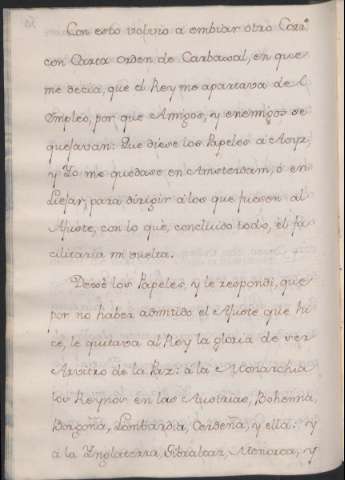 Con esto volvio a embiar otro Corr.º
con Carta orden de Carbaxal, en que
me decia, que el Rey me apartava del
Empleo, por que Amigos, y enemigos se
quejavan: Que diese los Papeles a
y Yo me quedase en Amsterdam, ó en
para dirigir á los que fuesen al
Ajuste, con lo que, concluido todo, él fa-
cilitaria mi vuelta.
Dexé los Papeles, y le respondi, que
por no haber admitido el Ajuste que hi-
ce, le quitava al Rey la gloria de ver
Arvitro de la Paz: á la Monarchia
los Reynos en las Austrias, Bohemia,
Borgoña, Lombardia, Cerdeña, y ella: y
á la Inglaterra, Gibraltar, Menorca, y